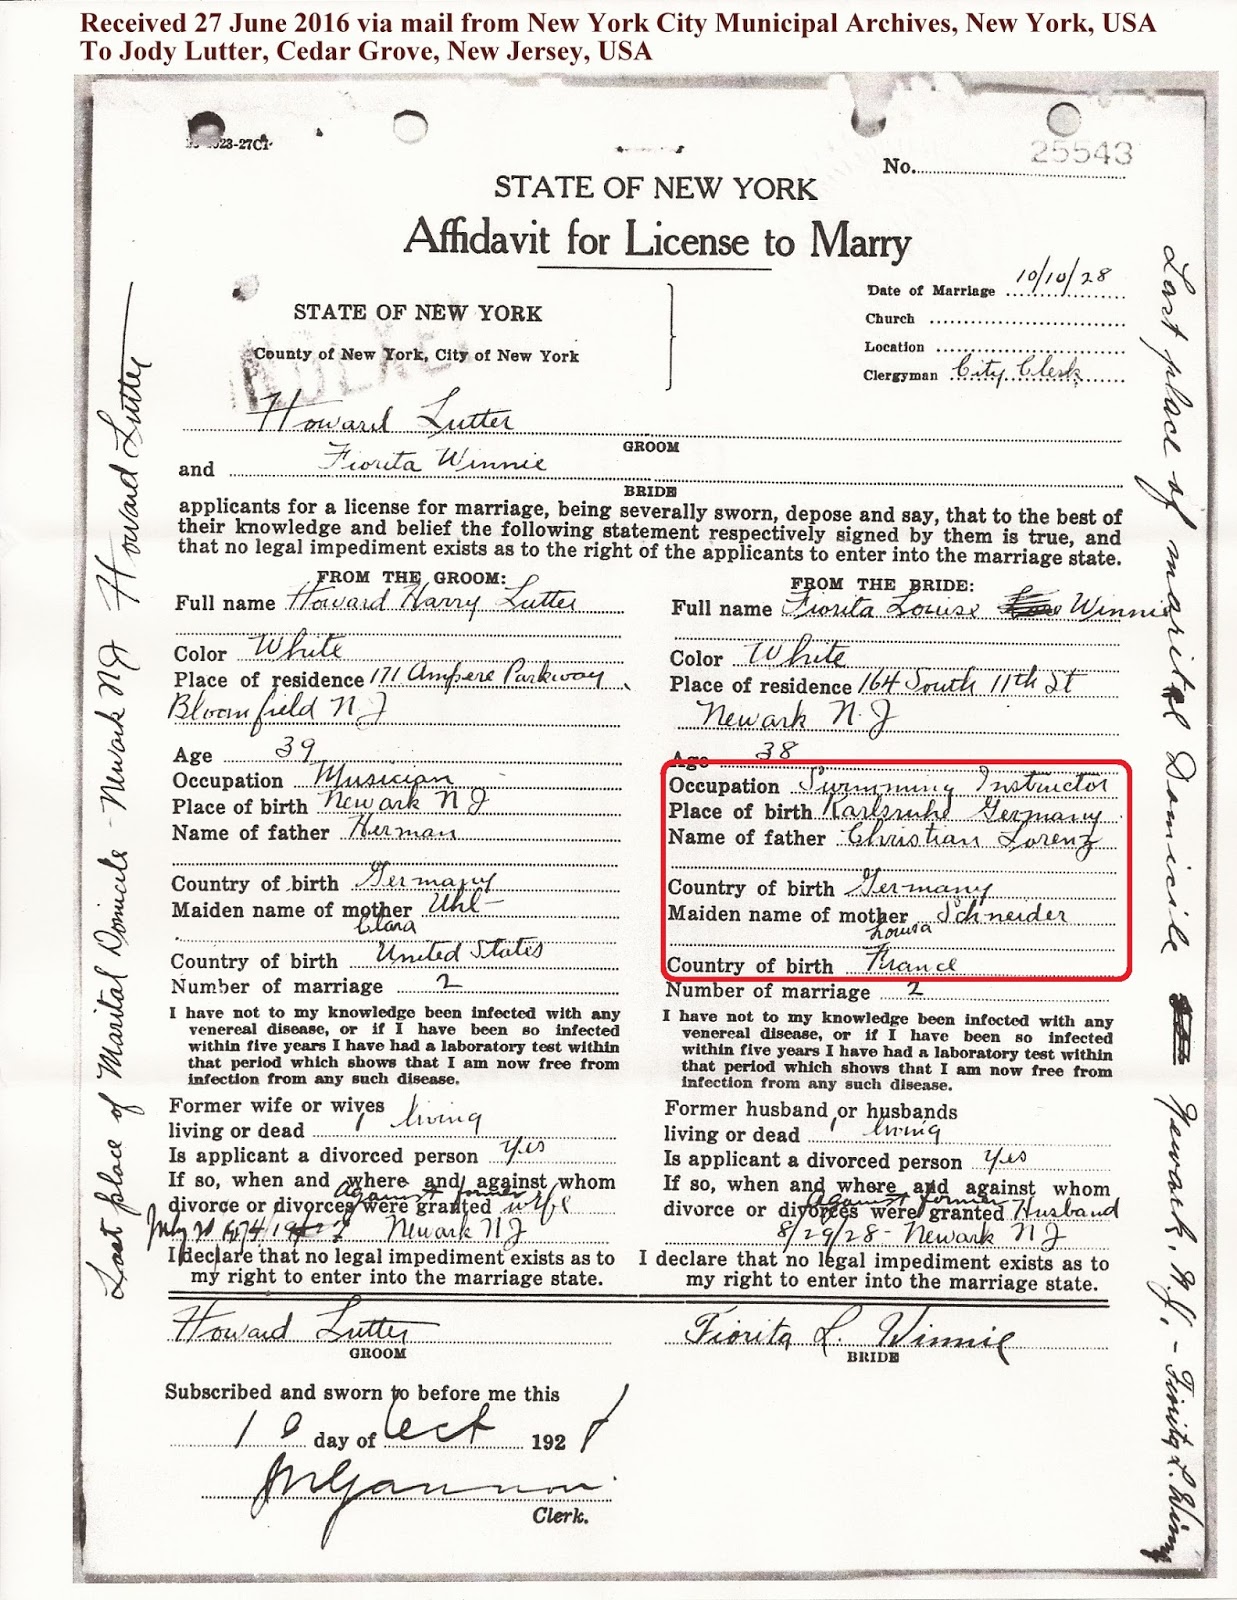 Received 27 June 2016 via mail from New York City Municipal Archives, New York, USA
To Jody Lutter, Cedar Grove, New Jersey, USA
23-27CT
No. 25543
STATE OF NEW YORK
Affidavit for License to Marry
STATE OF NEW YORK
County of New York, City of New York
Date of Marriage 10/10/28
Church
Location
Clergyman City Clerk
Howard Lutter
GROOM
and Fiorita Winnie
BRIDE
applicants for a license for marriage, being severally sworn, depose and say, that to the best of
their knowledge and belief the following statement respectively signed by them is true, and
that no legal impediment exists as to the right of the applicants to enter into the marriage state.
FROM THE GROOM:
Full name Howard Harry Lutter
Color White
Place of residence 171 Ampere Parkway
Bloomfield N J
Age 39
Occupation Musician
Place of birth Newark N J
Name of father Herman
Country of birth Germany
Maiden name of mother Uhl
Clara
Country of birth United States
Number of marriage 2
I have not to my knowledge been infected with any
venereal disease, or if I have been so infected
within five years I have had a laboratory test within
that period which shows that I am now free from
infection from any such disease.
Former wife or wives
living or dead 1 living
Is applicant a divorced person Yes
If so, when and where and against whom
Against former
divorce or divorces were granted wife
Newark N J
I declare that no legal impediment exists as to
my right to enter into the marriage state.
Howard Lutter
GROOM
FROM THE BRIDE:
Full name Fiorita Louise Winnie
Color White
Place of residence 164 South 11th St
Newark N. J
Age 38
Occupation Swimming Instructor
Place of birth Karlsruhe Germany
Name of father Christian Lorenz
Country of birth Germany
Maiden name of mother Schneider
Louisa
Country of birth France
Number of marriage 2
I have not to my knowledge been infected with any
venereal disease, or if I have been so infected
within five years I have had a laboratory test within
that period which shows that I am now free from
infection from any such disease.
Former husband or husbands
living or dead 1 living
Is applicant a divorced person Yes
If so, when and where and against whom
Against former
divorce or divorces were granted Husband
8/29/28 - Newark N J
I declare that no legal impediment exists as to
my right to enter into the marriage state.
Fiorita L. Winnie
BRIDE
Subscribed and sworn to before me this
10 day of Oct 1928
Clerk.
Last place of Marital Domicile - Newark N J Howard Lutter
Last place of marital Domicile Newark, N.J, - Fiorita L. Winnie